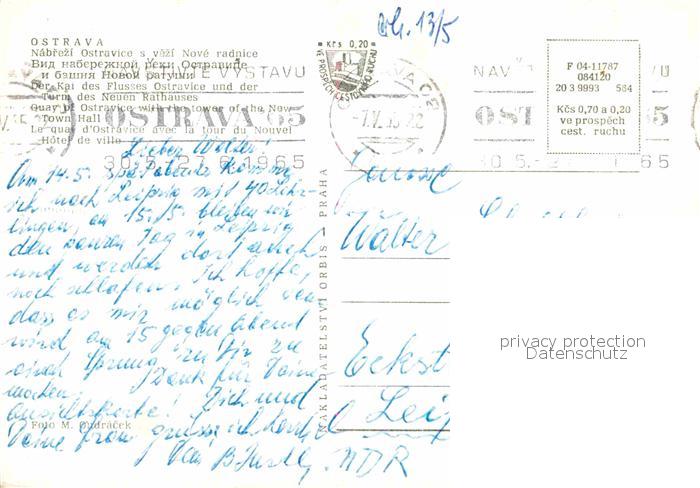 Vh. 13/5
OSTRAVA
Nábřeží Ostravice s věží Nové radnice
Вид набережной реки Остравице
и башня Новой ратуши
Der Kai des Flusses Ostravice und der
Turm des Neuen Rathauses
Quay of Ostravice with the tower of the New
Town Hall
Le quai d'Ostravice avec la tour du Nouvel
Hôtel de ville
Kčs 0,20
VE PROSPĚCH CESTOVNÍHO RUCHU
VÝSTAVU
OSTRAVA 65
30.5.-27.6.1965
NAV
OST
30.5.-2
65
F 04-11787
084120
20 3 9993 584
Kčs 0,70 a 0,20
ve prospěch
cest. ruchu
Lieber Walter!
Am 14.5. spät abends komme
ich nach Leipzig mit 40 Lehr-
lingen, am 15./5. bleiben wir
den ganzen Tag in Leipzig
und werden dort auch
noch schlafen. Ich hoffe,
dass es mir möglich sein
wird am 15 gegen Abend
einen Sprung zu Dir zu
machen. Dank für Deine
Ansichtskarte! Dich und
Deine Frau grüsst ich herzlich
NAKLADATELSTVÍ ORBIS - PRAHA
Genosse
Walter
Eckst
Leip
Foto M. Ondráček
NDR
privacy protection
Datenschutz